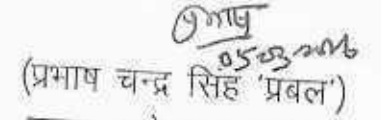 05-03-2016
(प्रभाष चन्द्र सिंह 'प्रबल')